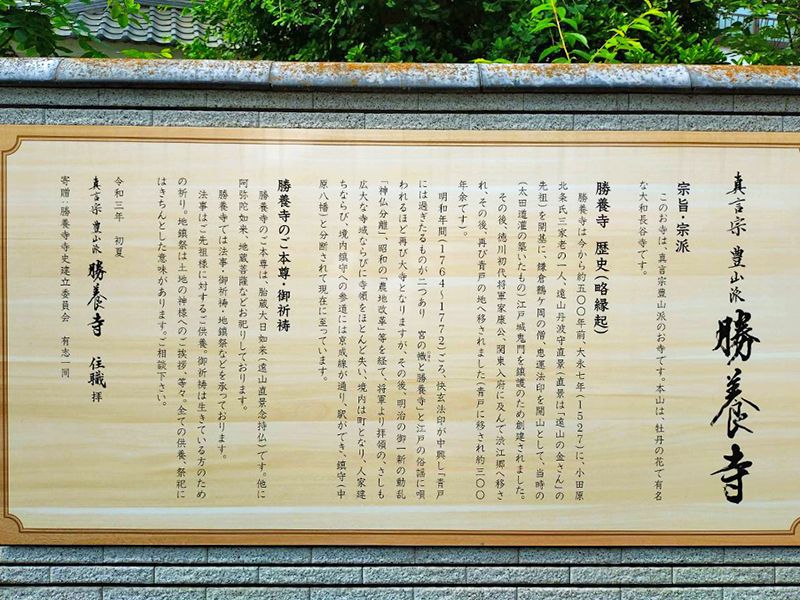 真言宗 豊山派 勝養寺
宗旨・宗派
このお寺は、真言宗豊山派のお寺です。本山は、牡丹の花で有名
な大和長谷寺です。
勝養寺 歴史(略縁起)
勝養寺は今から約五〇〇年前、大永七年(1527)に、小田原
北条氏三家老の一人、遠山丹波守直景(直景は「遠山の金さん」の
先祖)を開基に、鎌倉鶴ケ岡の僧、恵運法印を開山として、当時の
(太田道灌の築いたもの)江戸城鬼門を鎮護のため創建されました。
その後、徳川初代将軍家康公、関東入府に及んで渋江郷へ移さ
れ、その後、再び青戸の地へ移されました(青戸に移され約三〇〇
年余です)。
明和年間(1764〜1772)ごろ、快玄法印が中興し「青戸
には過ぎたるものが二つあり 宮の幟と勝養寺」と江戸の俗謡に唄
われるほど再び大寺となりますが、その後、明治の御一新の動乱
「神仏分離」、昭和の「農地改革」等を経て、将軍より拝領の、さしも
広大な寺域ならびに寺領をほとんど失い、境内は町となり、人家建
ちならび、境内鎮守への参道には京成線が通り、駅ができ、鎮守(中
原八幡)と分断されて現在に至っています。
勝養寺のご本尊・御祈祷
勝養寺のご本尊は、胎蔵大日如来(遠山直景念持仏)です。他に
阿弥陀如来、地蔵菩薩などお祀りしております。
勝養寺では法事・御祈祷・地鎮祭などを承っております。
法事はご先祖様に対するご供養。御祈祷は生きている方のため
の祈り。地鎮祭は土地の神様へのご挨拶、等々。全ての供養、祭祀に
はきちんとした意味があります。ご相談下さい。
令和三年 初夏
真言宗 豊山派 勝養寺 住職 拝
寄贈:勝養寺寺史建立委員会 有志一同